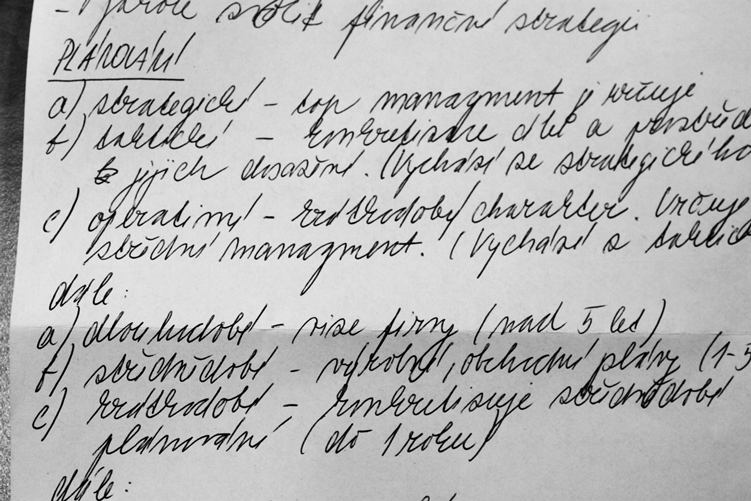 - finanční strategii
PLÁNOVÁNÍ
a) strategické - top managment je určuje
b) taktické - konkretizace cílů a prostřed
jejich dosažení. (Vychází ze strategického
c) operativní - krátkodobý charakter. Určuje
střední managment. (Vychází z taktic
dále:
a) dlouhodobé - vize firmy (nad 5 let)
b) střednědobé - výrobní, obchodní plány (1-5
c) krátkodobé - konkretisuje střednědobé
plánování (do 1 roku)
dále: